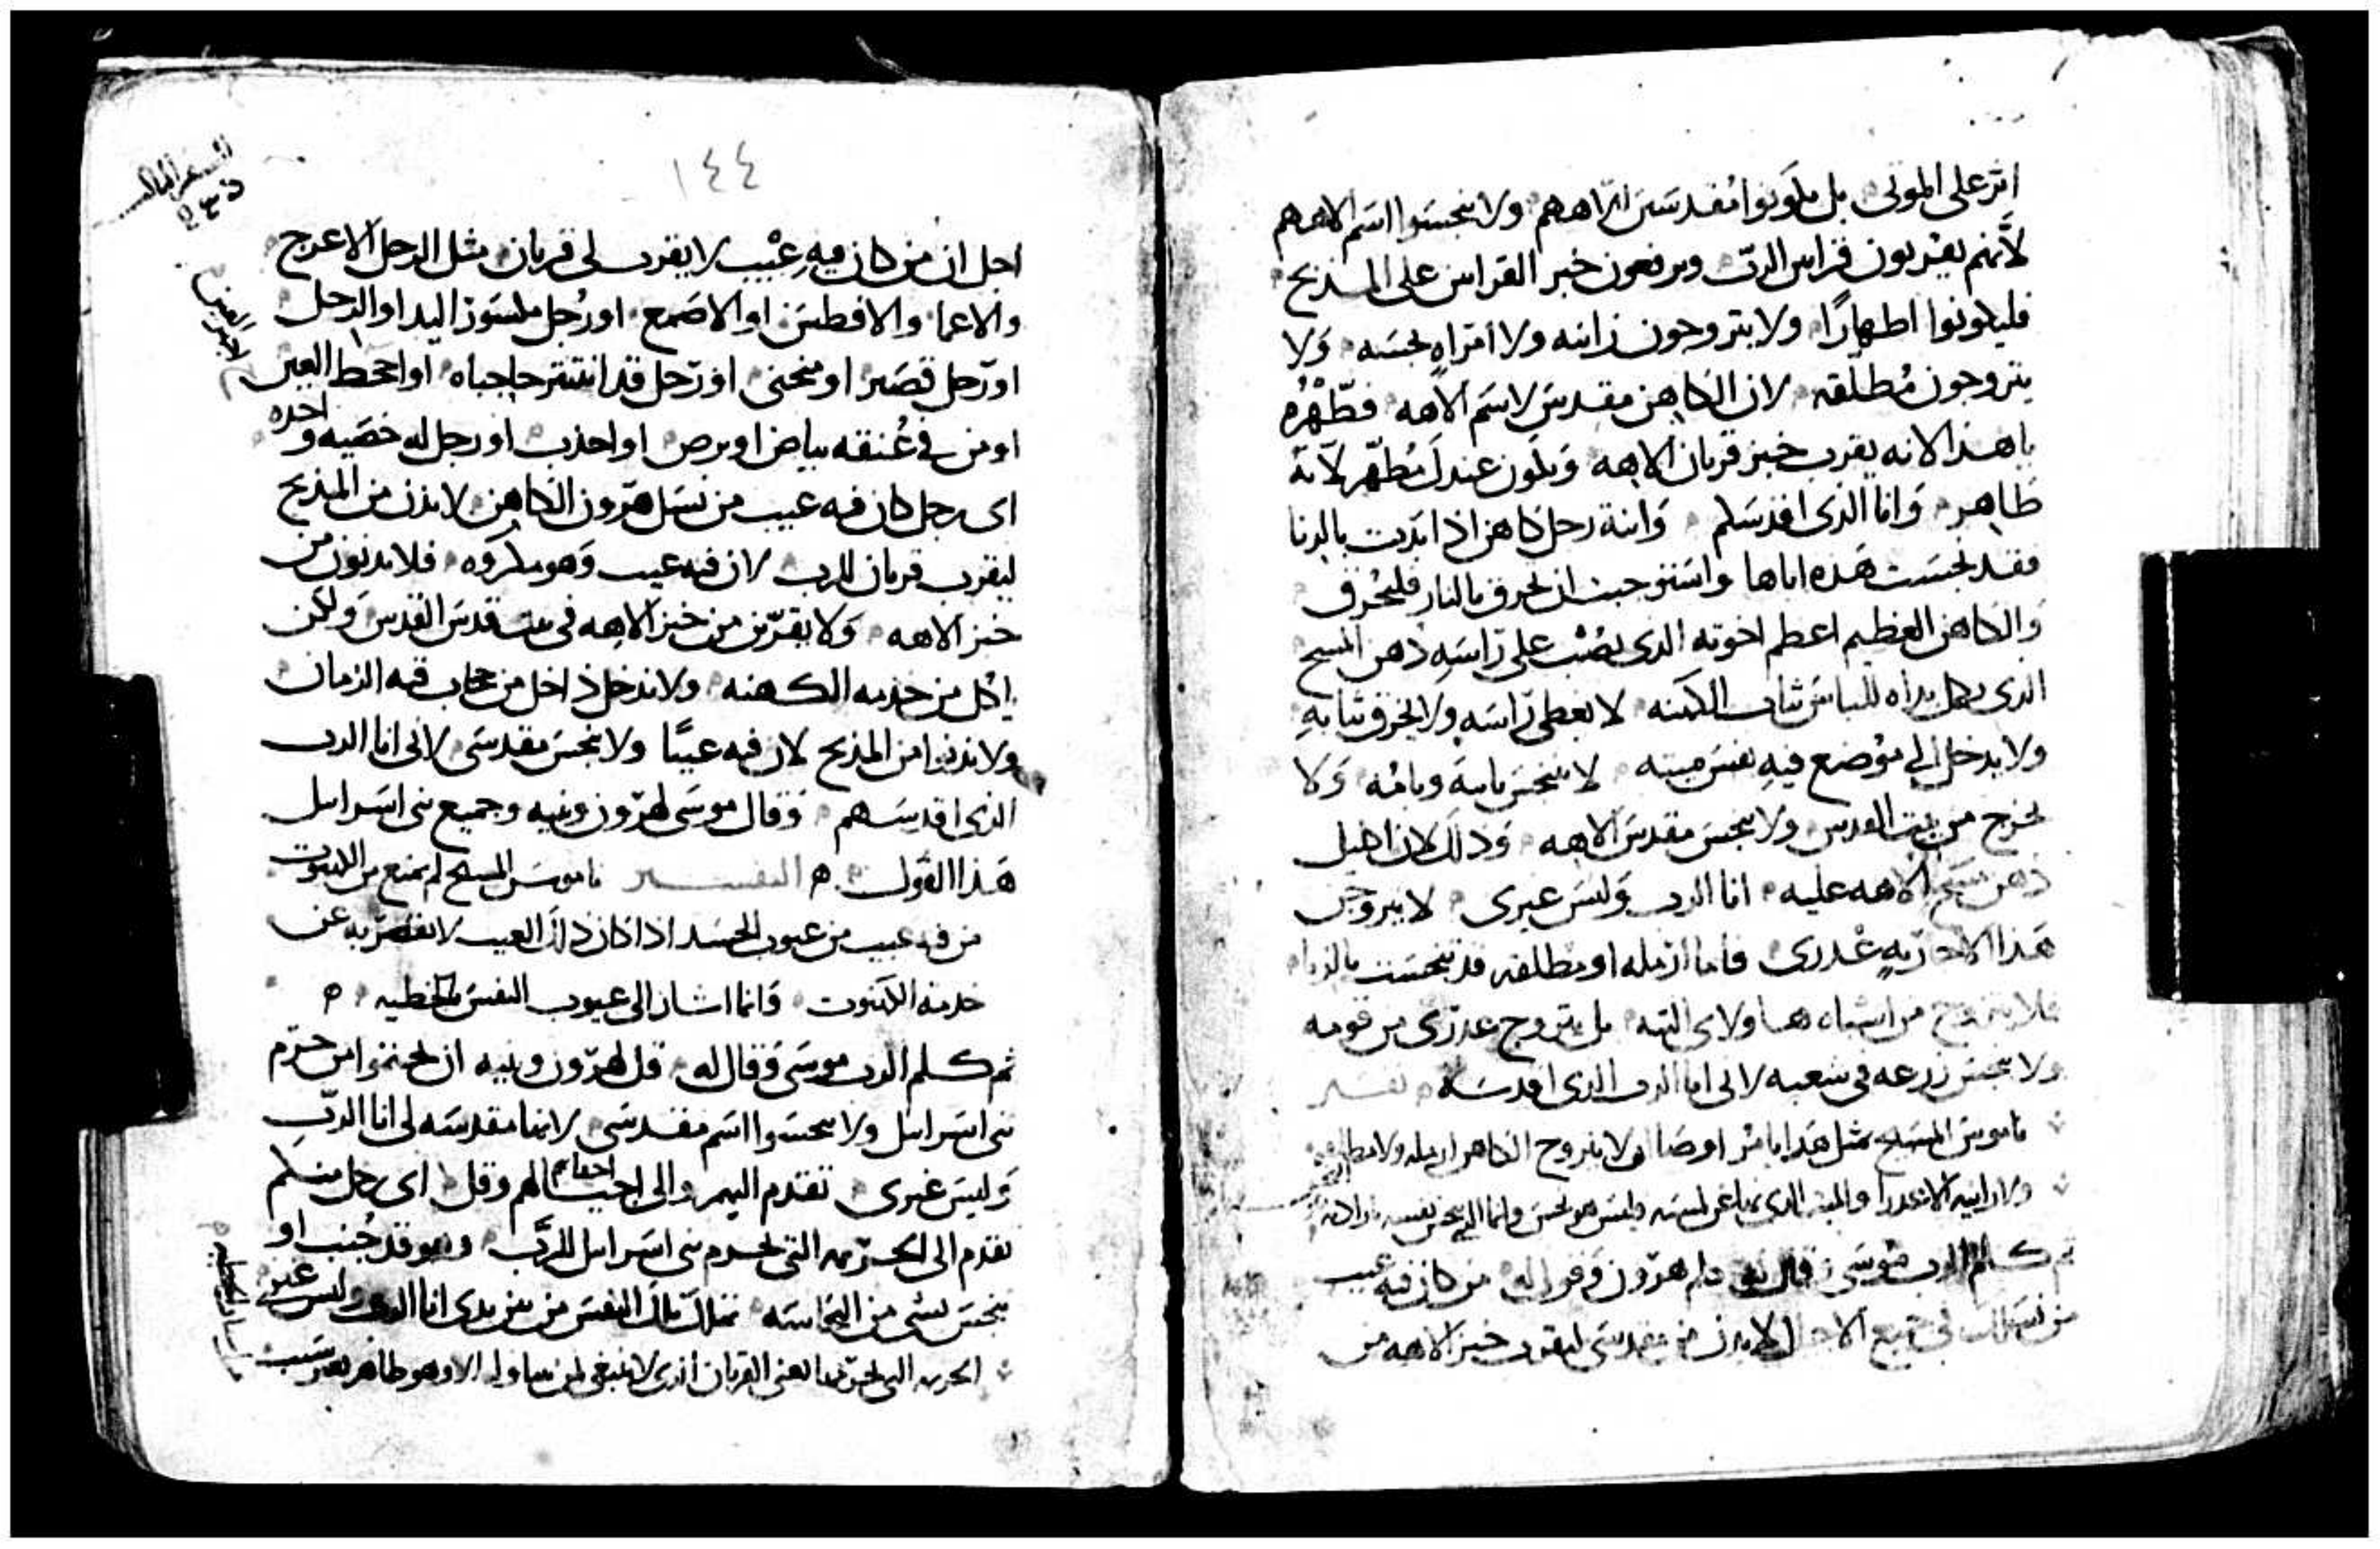 اثر على الموتى بل يكونوا مقدسين لالاههم ولا ينجسوا اسم الاههم
لانهم يقربون قراس الرب ويرفعون خبر القراس على المذبح
فليكونوا اطهارًا ولا يتزوجون زانيه ولا امراه نجسه ولا
يتزوجون مطلقه لان الكاهن مقدس لاسم الاهه فطهره
يا هذا لانه يقرب خبز قربان الاهه ويكون عندك مطهر لانه
طاهر وانا الذى اقدسكم وابنة رجل كاهن اذا ابدت بالزنا
فقد نجست هذه اباها واستوجبت ان تحرق بالنار فلتحرق
والكاهن العظيم اعظم اخوته الذى يصب على راسه دهن المسح
الذى يكمل يداه للباس ثياب الكهنه لا يغطى راسه ولا يخرق ثيابه
ولا يدخل الى موضع فيه نفس ميته لا يتنجس بابيه وبامه ولا
يخرج من بيت القدس ولا ينجس مقدس الاهه وذلك لان اكليل
دهن مسح الاهه عليه انا الرب وليس غيرى لا يتزوجن
هذا الا جاريه عذرى فاما ارمله او مطلقه قد تنجست بالزنا
فلا يتزوج من اشباه هـ ولا ى البته بل يتزوج عذرى من قومه
ولا ينجس زرعه فى شعبه لانى انا الرب الذى اقدسه تفسير
ناموس المسيح بمثل هذا يامر اوصا ان لا يتزوج الكاهن ارمله ولا مطلقه
ولا زانيه الا عذرا والميت الذى نها عن لمسه وليس هو نجس وانما
ثم كلم الرب موسى وقال له كلم هرون وقول له من كان فيه عيب
من نسلك فى جميع الاجيال لا يدن من مقدسى ليقرب خبز الاهه من
١٤٤
السفر الثالث
اجل ان من كان فيه عيب لا يقرب لى قربان مثل الرجل الاعرج
والاعما والافطس او الاصمع او رجل مكسور اليد او الرجل
او رجل قصير او منحنى او رجل قد انتثر حاجباه او اجحظ العين
او من فى عنقه بياض او برص او احدب او رجل له خصيه واحده
اى رجل كان فيه عيب من نسل هرون الكاهن لا يدن من المذبح
ليقرب قربان للرب لان فيه عيب وهو مكروه فلا يدنون من
خبز الاهه ولا يقربن من خبز الاهه فى بيت قدس القدس ولكن
ياكل من خدمه الكهنه ولا يدخل داخل من حجاب قبه الزمان
ولا يدنوا من المذبح لان فيه عيبًا ولا ينجس مقدسى لانى انا الرب
الذى اقدسهم وقال موسى لهرون وبنيه وجميع بنى اسرايل
هذا القول ه التفسير ناموس المسيح لم يمنع من الكهنوت
من فيه عيب من عيوب الجسد اذا كان ذلك العيب لا يقصر به عن
خدمة الكهنوت وانما اشار الى عيوب النفس بالخطيه ه
ثم كلم الرب موسى وقال له قل لهرون وبنيه ان يجتنبوا من حرم
بنى اسرايل ولا ينجسوا اسم مقدسى لانها مقدسه لى انا الرب
وليس غيرى تقدم اليهم والى احقابهم اجيالهم وقل اى رجل منكم
تقدم الى الحرمه التى تحرم بنى اسرايل للرب وهو قد جنب او
ينجس بشى من النجاسه تهلك تلك النفس من بين يدى انا الرب وليس غيرى
الحرمه التى يحرمها يعنى القربان الذى لا ينبغى لمن يتناوله الا وهو طاهر بغير سبب